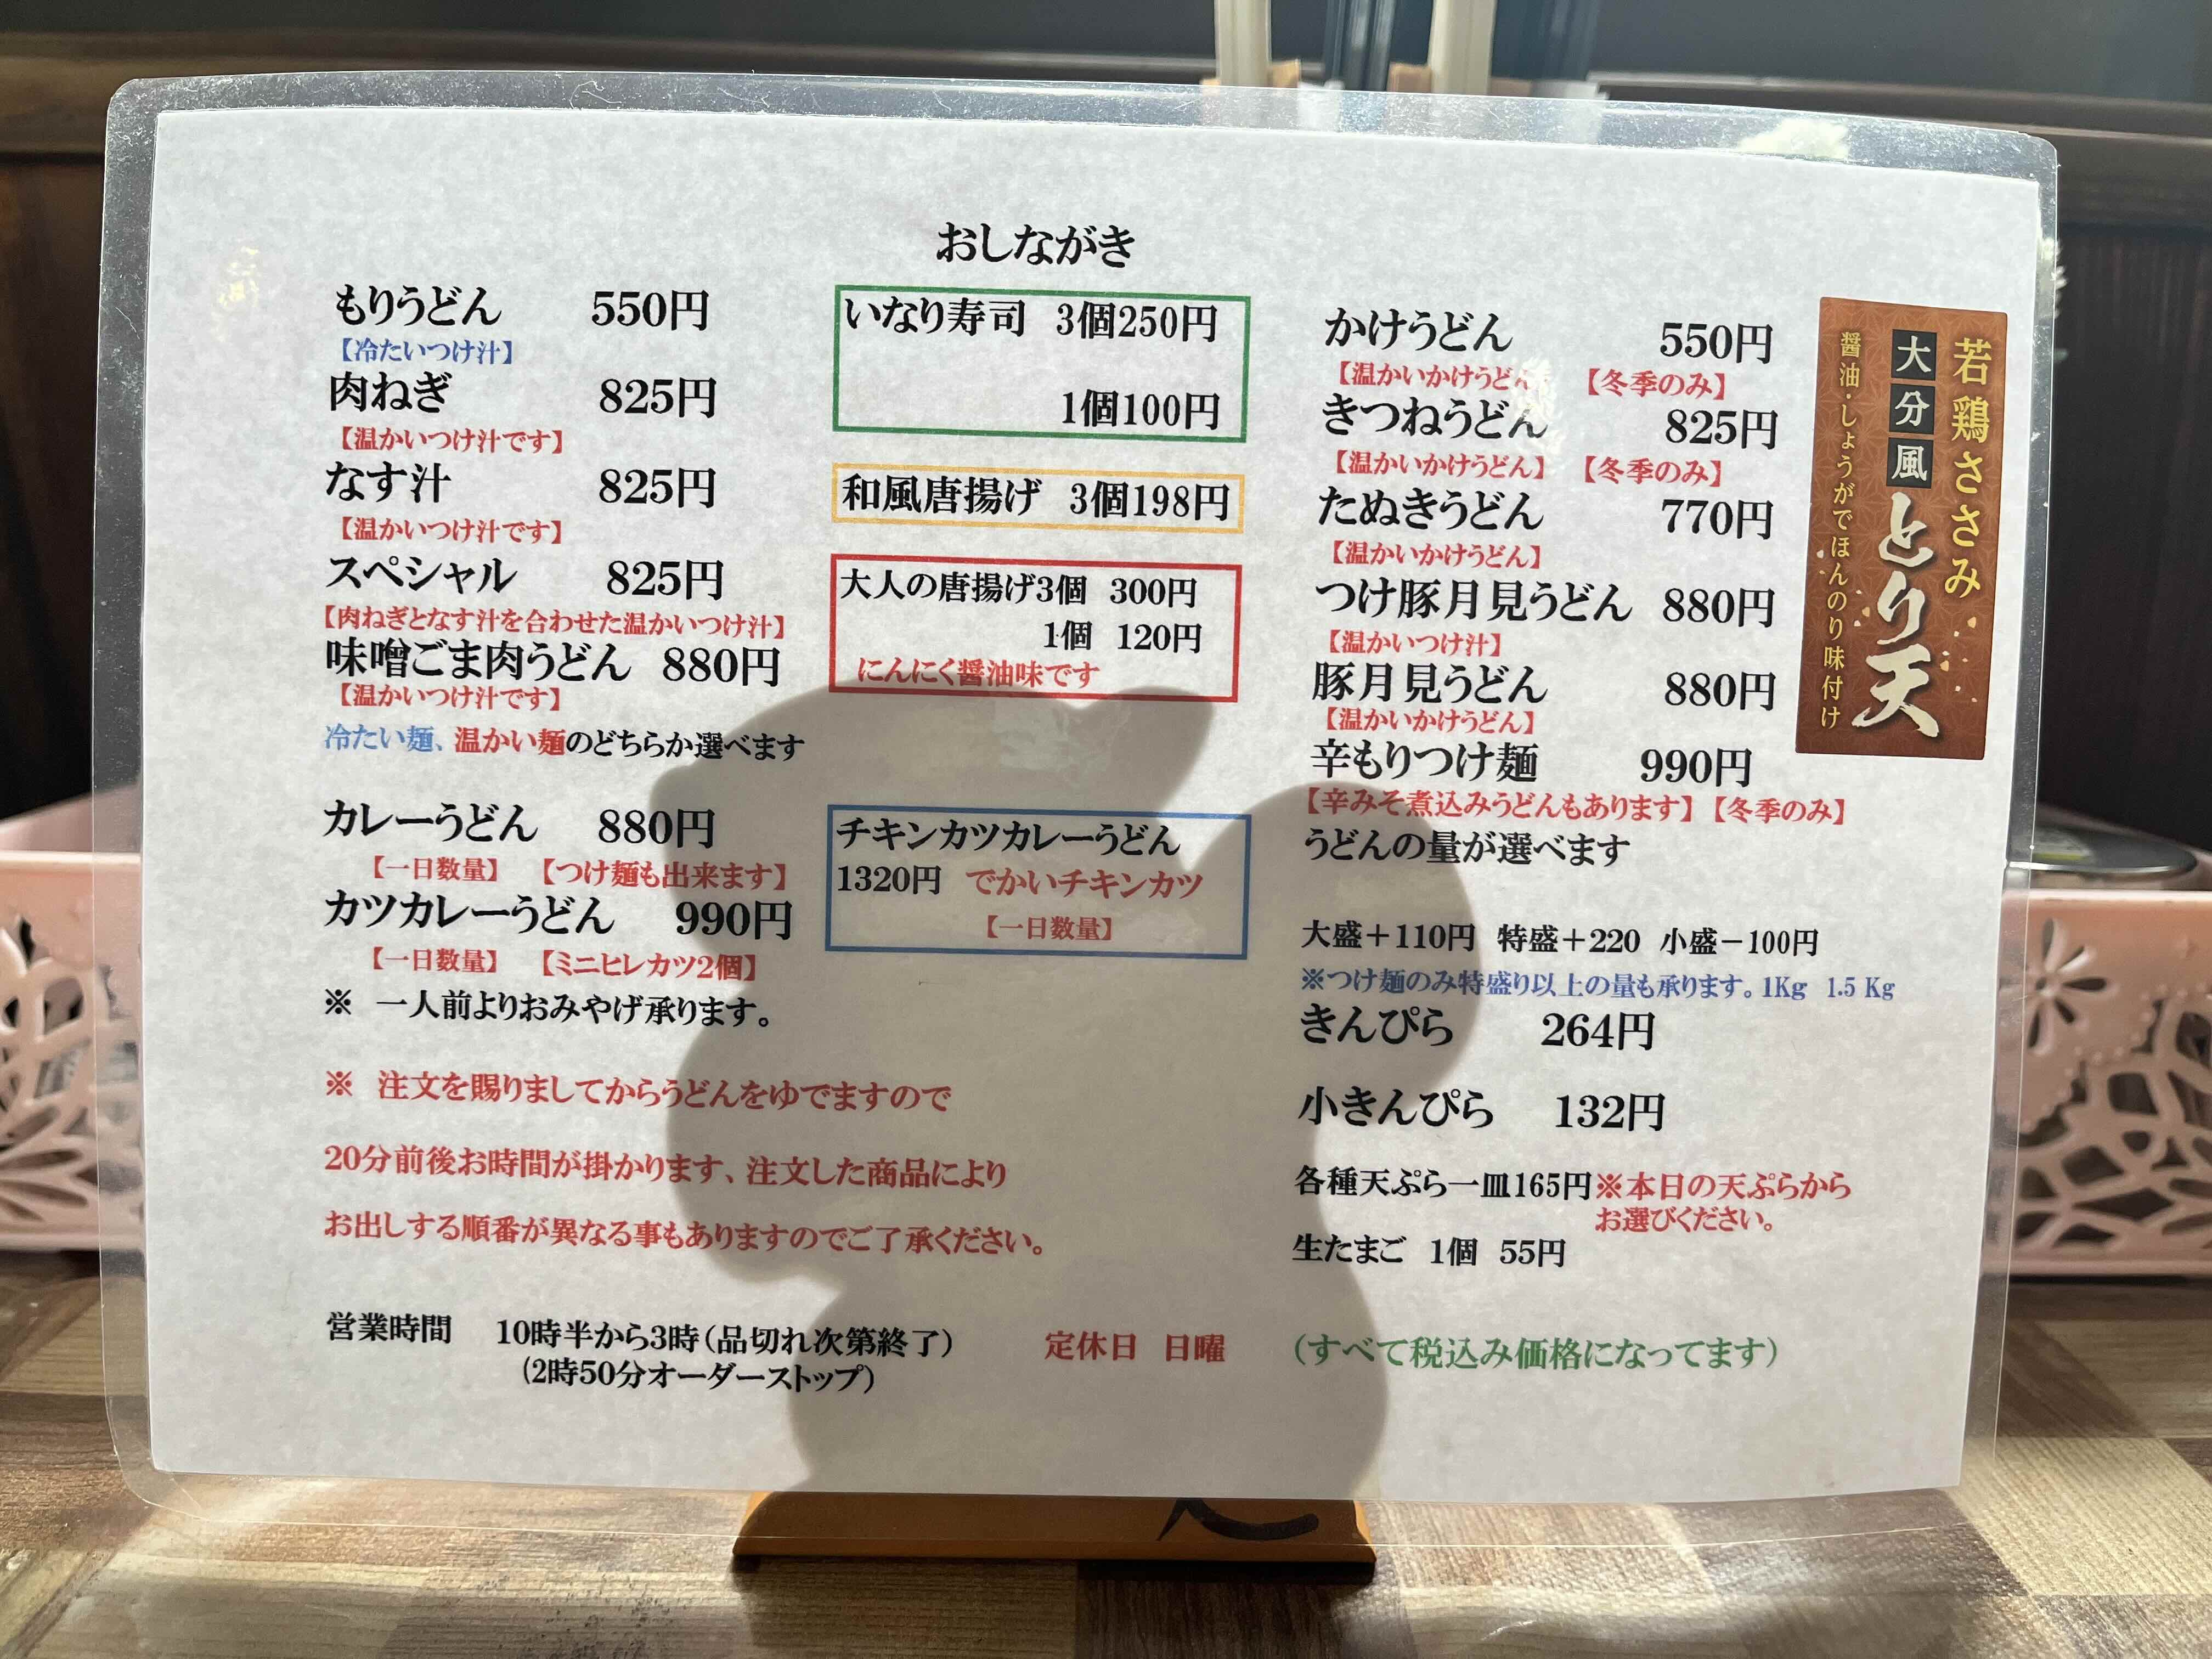 おしながき
もりうどん 550円
【冷たいつけ汁】
肉ねぎ 825円
【温かいつけ汁です】
なす汁 825円
【温かいつけ汁です】
スペシャル 825円
【肉ねぎとなす汁を合わせた温かいつけ汁】
味噌ごま肉うどん 880円
【温かいつけ汁です】
冷たい麺、温かい麺のどちらか選べます
カレーうどん 880円
【一日数量】 【つけ麺も出来ます】
カツカレーうどん 990円
【一日数量】 【ミニヒレカツ2個】
※ 一人前よりおみやげ承ります。
※ 注文を賜りましてからうどんをゆでますので
20分前後お時間が掛かります、注文した商品により
お出しする順番が異なる事もありますのでご了承ください。
いなり寿司 3個250円
1個100円
和風唐揚げ 3個198円
大人の唐揚げ3個 300円
1個 120円
にんにく醤油味です
チキンカツカレーうどん
1320円 でかいチキンカツ
【一日数量】
かけうどん 550円
【温かいかけうどん】 【冬季のみ】
きつねうどん 825円
【温かいかけうどん】 【冬季のみ】
たぬきうどん 770円
【温かいかけうどん】
つけ豚月見うどん 880円
【温かいつけ汁】
豚月見うどん 880円
【温かいかけうどん】
辛もりつけ麺 990円
【辛みそ煮込みうどんもあります】【冬季のみ】
うどんの量が選べます
大盛＋110円 特盛＋220 小盛－100円
※つけ麺のみ特盛り以上の量も承ります。1Kg 1.5 Kg
きんぴら 264円
小きんぴら 132円
各種天ぷら一皿165円※本日の天ぷらから
お選びください。
生たまご 1個 55円
若鶏ささみ
大分風とり天
醤油・しょうがでほんのり味付け
営業時間 10時半から3時（品切れ次第終了）
（2時50分オーダーストップ）
定休日 日曜
（すべて税込み価格になってます）